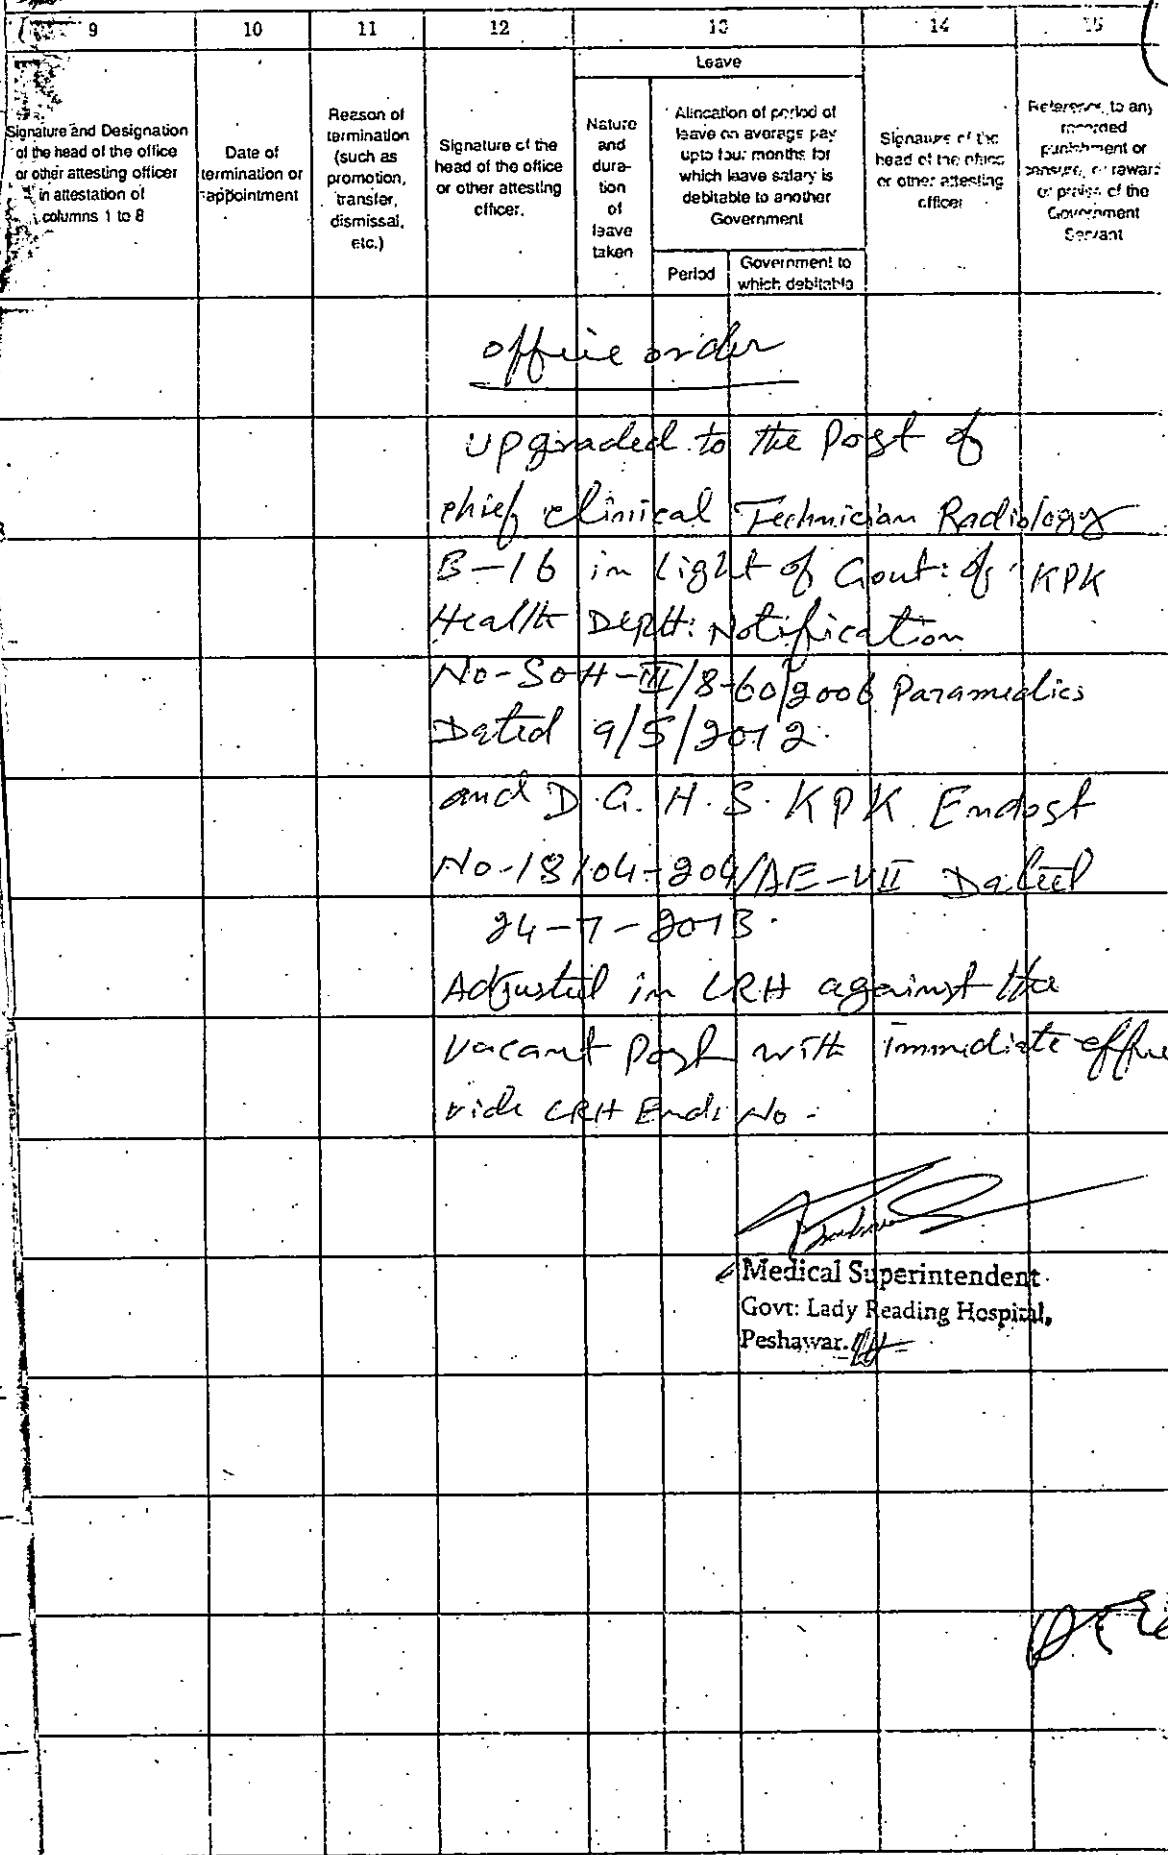 9 10 11 12 13 14 15
Leave
Signature and Designation
of the head of the office
or other attesting officer
in attestation of
columns 1 to 8
Date of
termination or
appointment
Reason of
termination
(such as
promotion,
transfer,
dismissal,
etc.)
Signature of the
head of the office
or other attesting
officer.
Nature
and
dura-
tion
of
leave
taken
Allocation of period of
leave on average pay
upto four months for
which leave salary is
debitable to another
Government
Period
Government to
which debitable
Signature of the
head of the office
or other attesting
officer
Reference to any
recorded
punishment or
censure, or reward
or praise of the
Government
Servant
office order
upgraded to the Post of
chief clinical Technician Radiology
B-16 in light of Gout: of KPK
Health Deptt: Notification
No-SOH-III/8-60/2006 Paramedics
Dated 9/5/2012.
and D.G.H.S. KPK Endost
No-18104-204/AE-VII Dated
24-7-2013.
Adjusted in LRH against the
vacant post with immediate
vide LRH Ends No-
Medical Superintendent
Govt: Lady Reading Hospital,
Peshawar.